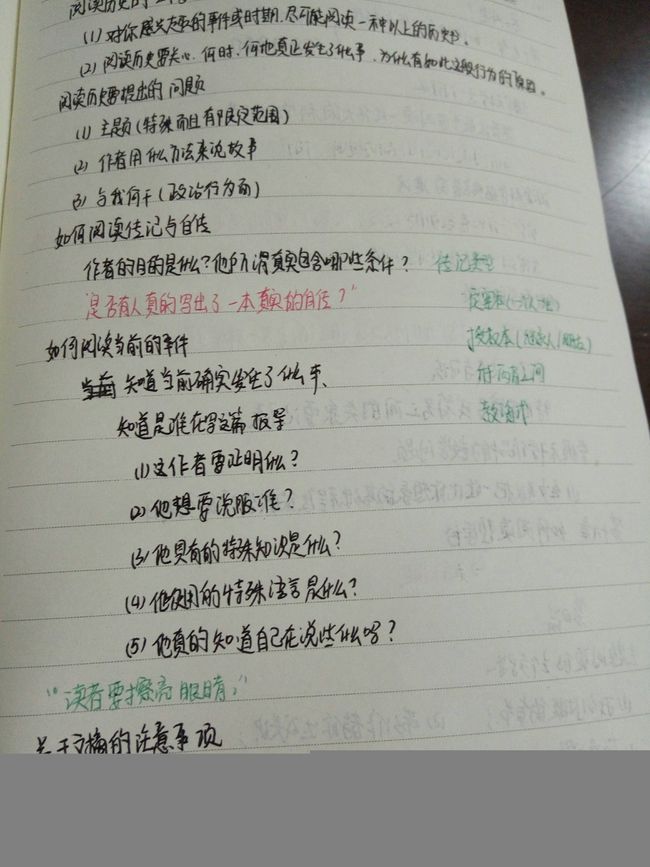 阅读历史的
(1) 对你感兴趣的事件或时期,尽可能阅读一种以上的历史书。
(2) 阅读历史要关心,何时、何地真正发生了什么事,为什么有如此这般行为的原因。
阅读历史要提出的问题
(1) 主题(特殊而且有限定范围)
(2) 作者用什么方法来说故事
(3) 与我何干(政治行为面)
如何阅读传记与自传
作者的目的是什么?他所谓真实包含哪些条件? 传记类型
"是否有人真的写出了一本真实的自传?" 定案本(一次/一生)
如何阅读当前的事件 授权本
知道当前确实发生了什么事、 介于两者之间
知道是谁在写这篇报导 教诲式
(1) 这作者要证明什么?
(2) 他想要说服谁?
(3) 他具有的特殊知识是什么?
(4) 他使用的特殊语言是什么?
(5) 他真的知道自己在说些什么吗?
"读者要擦亮眼睛。"
关于文摘的注意事项